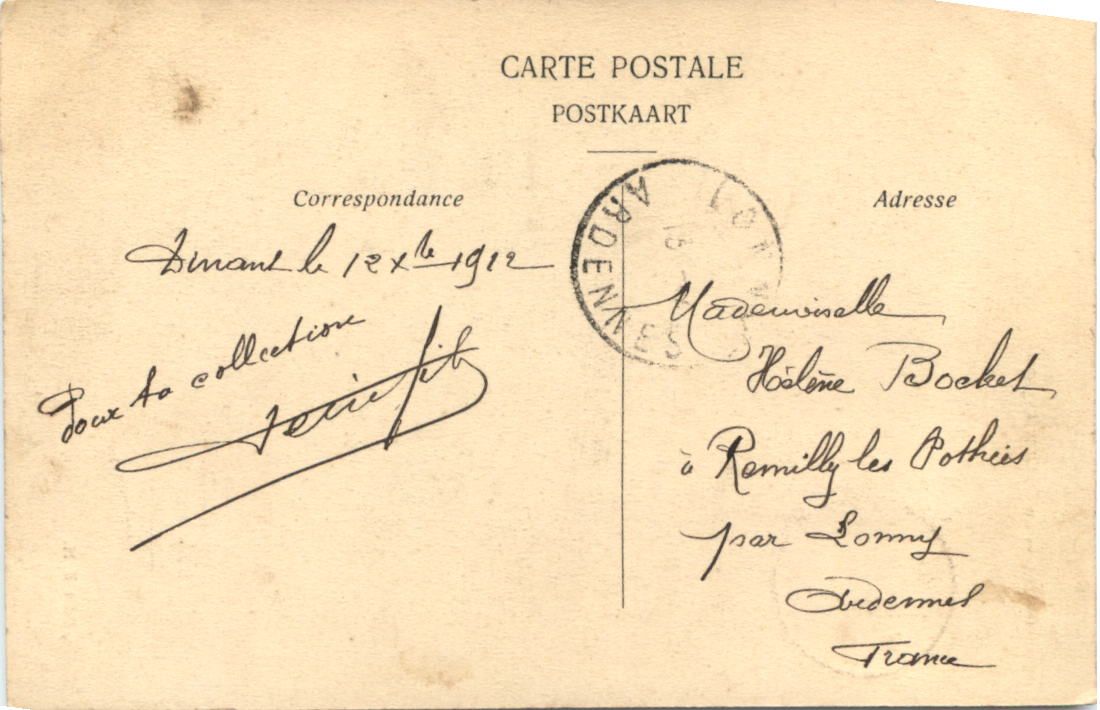 CARTE POSTALE
POSTKAART
Correspondance
Adresse
Dinant le 12 Xbre 1912
Pour ta collection
LONNY
ARDENNES
Mademoiselle
Hélène Bocket
à Remilly les Pothées
par Lonny
Ardennes
France